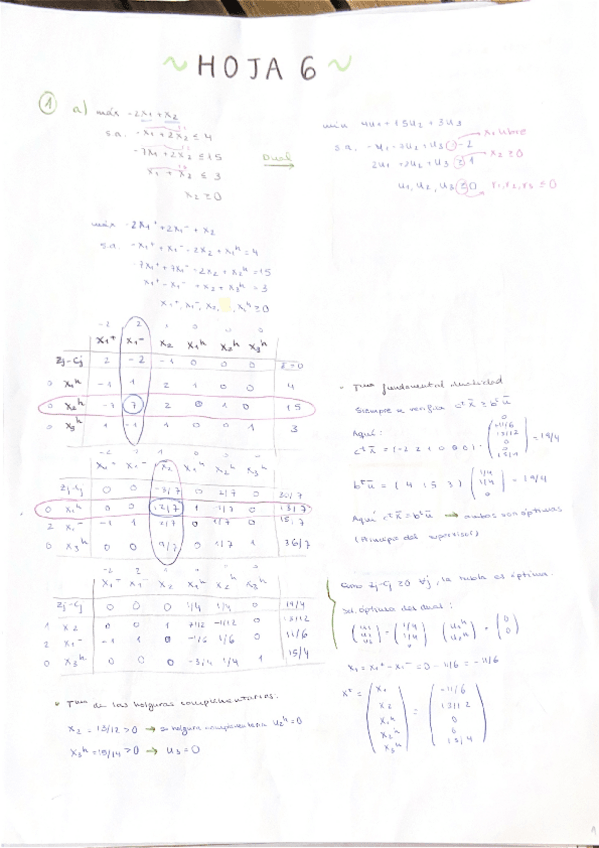 ~ HOJA 6 ~
① a) máx -2x₁ + x₂
s.a. -x₁ + 2x₂ ≤ 4
-7x₁ + 2x₂ ≤ 15
x₁ + x₂ ≤ 3
x₂ ≥ 0
Dual
min 4u₁ + 15u₂ + 3u₃
s.a. -u₁ - 7u₂ + u₃ = -2
x₁ libre
2u₁ + 2u₂ + u₃ ≥ 1
x₂ ≥ 0
u₁, u₂, u₃ ≥ 0
máx -2x₁⁺ + 2x₁⁻ + x₂
s.a. -x₁⁺ + x₁⁻ + 2x₂ + x₁ʰ = 4
-7x₁⁺ + 7x₁⁻ + 2x₂ + x₂ʰ = 15
x₁⁺ - x₁⁻ + x₂ + x₃ʰ = 3
-2 2 1 0 0 0
x₁⁺ x₁⁻ x₂ x₁ʰ x₂ʰ x₃ʰ
zj-cj 2 -2 -1 0 0 0 z=0
0 x₁ʰ -1 1 2 1 0 0 4
0 x₂ʰ -7 7 2 0 1 0 15
0 x₃ʰ 1 -1 1 0 0 1 3
x₁⁺ x₁⁻ x₂ x₁ʰ x₂ʰ x₃ʰ
zj-cj 0 0 -3/7 0 2/7 0 30/7
0 x₁ʰ 0 0 12/7 1 -1/7 0 13/7
2 x₁⁻ -1 1 2/7 0 1/7 0 15/7
0 x₃ʰ 0 0 9/7 0 1/7 1 36/7
x₁⁺ x₁⁻ x₂ x₁ʰ x₂ʰ x₃ʰ
zj-cj 0 0 0 1/4 1/4 0 19/4
1 x₂ 0 0 1 7/12 -1/12 0 13/12
2 x₁⁻ -1 1 0 -1/6 1/6 0 11/6
0 x₃ʰ 0 0 0 -3/4 1/4 1 15/4
Tma fundamental dualidad
Siempre se verifica
Aquí:
= 19/4
bᵗū = (4 15 3) (1/4 1/4 0) = 19/4
Aquí cᵗx̄ = bᵗū → ambos son óptimas
Como zj-cj ≥ 0 ∀j, la tabla es óptima.
Sol. óptima del dual:
(u₁ u₂ u₃) = (1/4 1/4 0) (u₁ʰ u₂ʰ) = (0 0)
x₁ = x₁⁺ - x₁⁻ = 0 - 11/6 = -11/6
x* = (x₁ x₂ x₁ʰ x₂ʰ x₃ʰ) = (-11/6 13/12 0 0 15/4)
• Tma de las holguras complementarias.
x₂ = 13/12 > 0 → su holgura complementaria u₂ʰ = 0
x₃ʰ = 15/4 > 0 → u₃ = 0
1